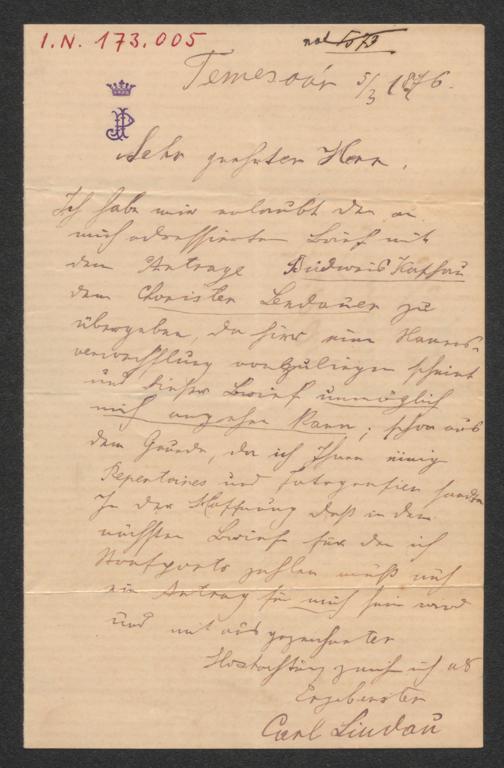 I.N. 173.005
Temesvár 5/3 1876.
JP
Sehr geehrter Herr,
Ich habe mir erlaubt den an
mich adressierten Brief mit
dem Antrage Budweis Kaschau
dem Choristen Lendauer zu
übergeben, da hier eine Namens-
verwechslung vorzuliegen scheint
und dieser Brief unmöglich
mich angehen kann; schon aus
dem Grunde, da ich Ihnen einig
Repertoires und Fotografien sandte
In der Hoffnung daß in dem
nächsten Brief für den ich
Strafporto zahlen muß auch
ein Antrag für mich sein wird
und mit ausgezeichneter
Hochachtung zeichne ich als
Ergebenster
Carl Lindau